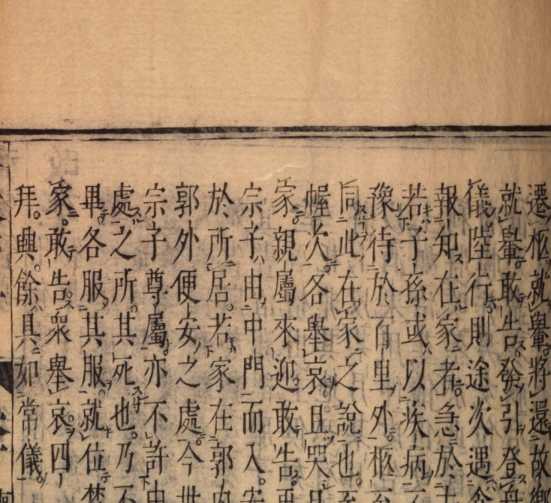 遷柩就轝將還故鄉
就轝敢告發引登
儀陞行則途次遇
報知在家者急於
若子孫或以疾病
豫待於百里外柩
同此在家之說也
幄次各舉哀且哭
家親屬來迎敢告
宗子由中門而入安
於所居若家在郭內
郭外便安之處今世
宗子尊屬亦不許
處之所其死也乃不
畢各服其服就位焚
家敢告衆舉哀四
拜興餘具如常儀